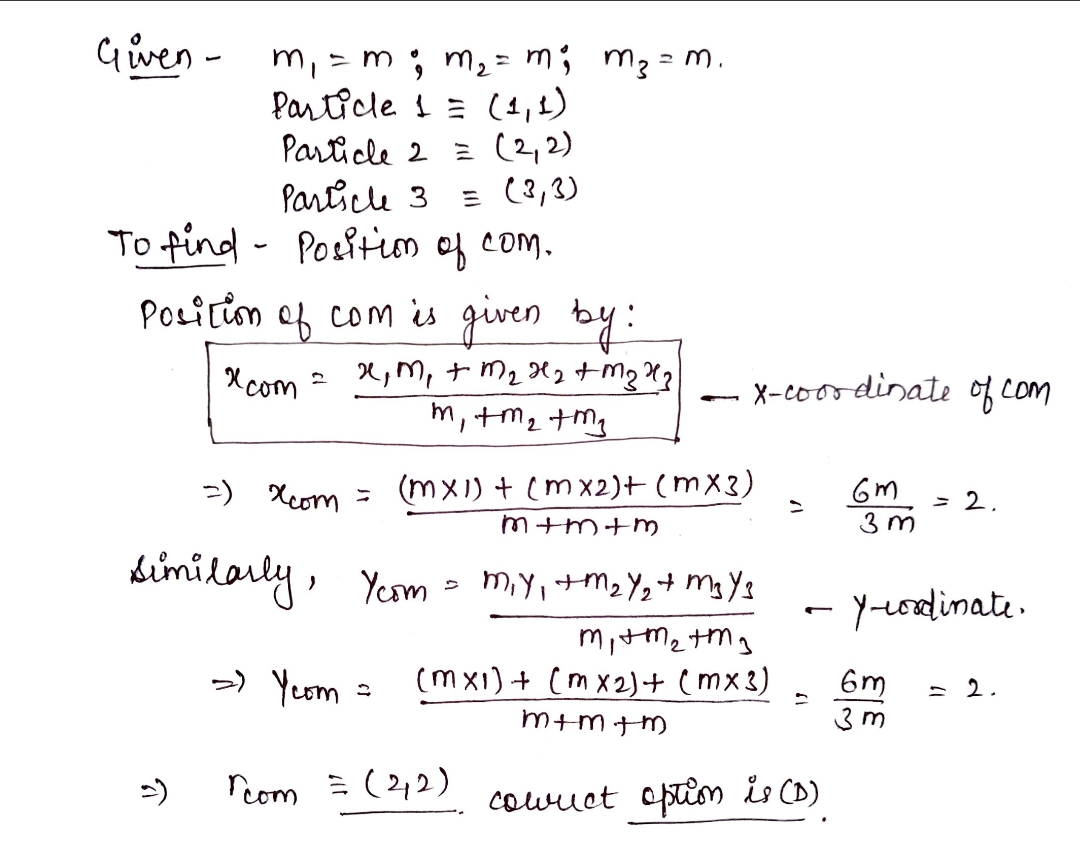 Given - m₁ = m ; m₂ = m ; m₃ = m.
Particle 1 ≡ (1,1)
Particle 2 ≡ (2,2)
Particle 3 ≡ (3,3)
To find - Position of COM.
Position of COM is given by :
x com = x₁m₁ + m₂x₂ + m₃x₃ / m₁ + m₂ + m₃ — X-coordinate of COM
=> xcom = (m×1) + (m×2) + (m×3) / m+m+m = 6m / 3m = 2.
Similarly, Ycom = m₁y₁ + m₂y₂ + m₃y₃ / m₁ + m₂ + m₃ - y-cordinate.
=> Ycom = (m×1) + (m×2) + (m×3) / m+m+m = 6m / 3m = 2.
=> rcom ≡ (2,2). correct option is (D).